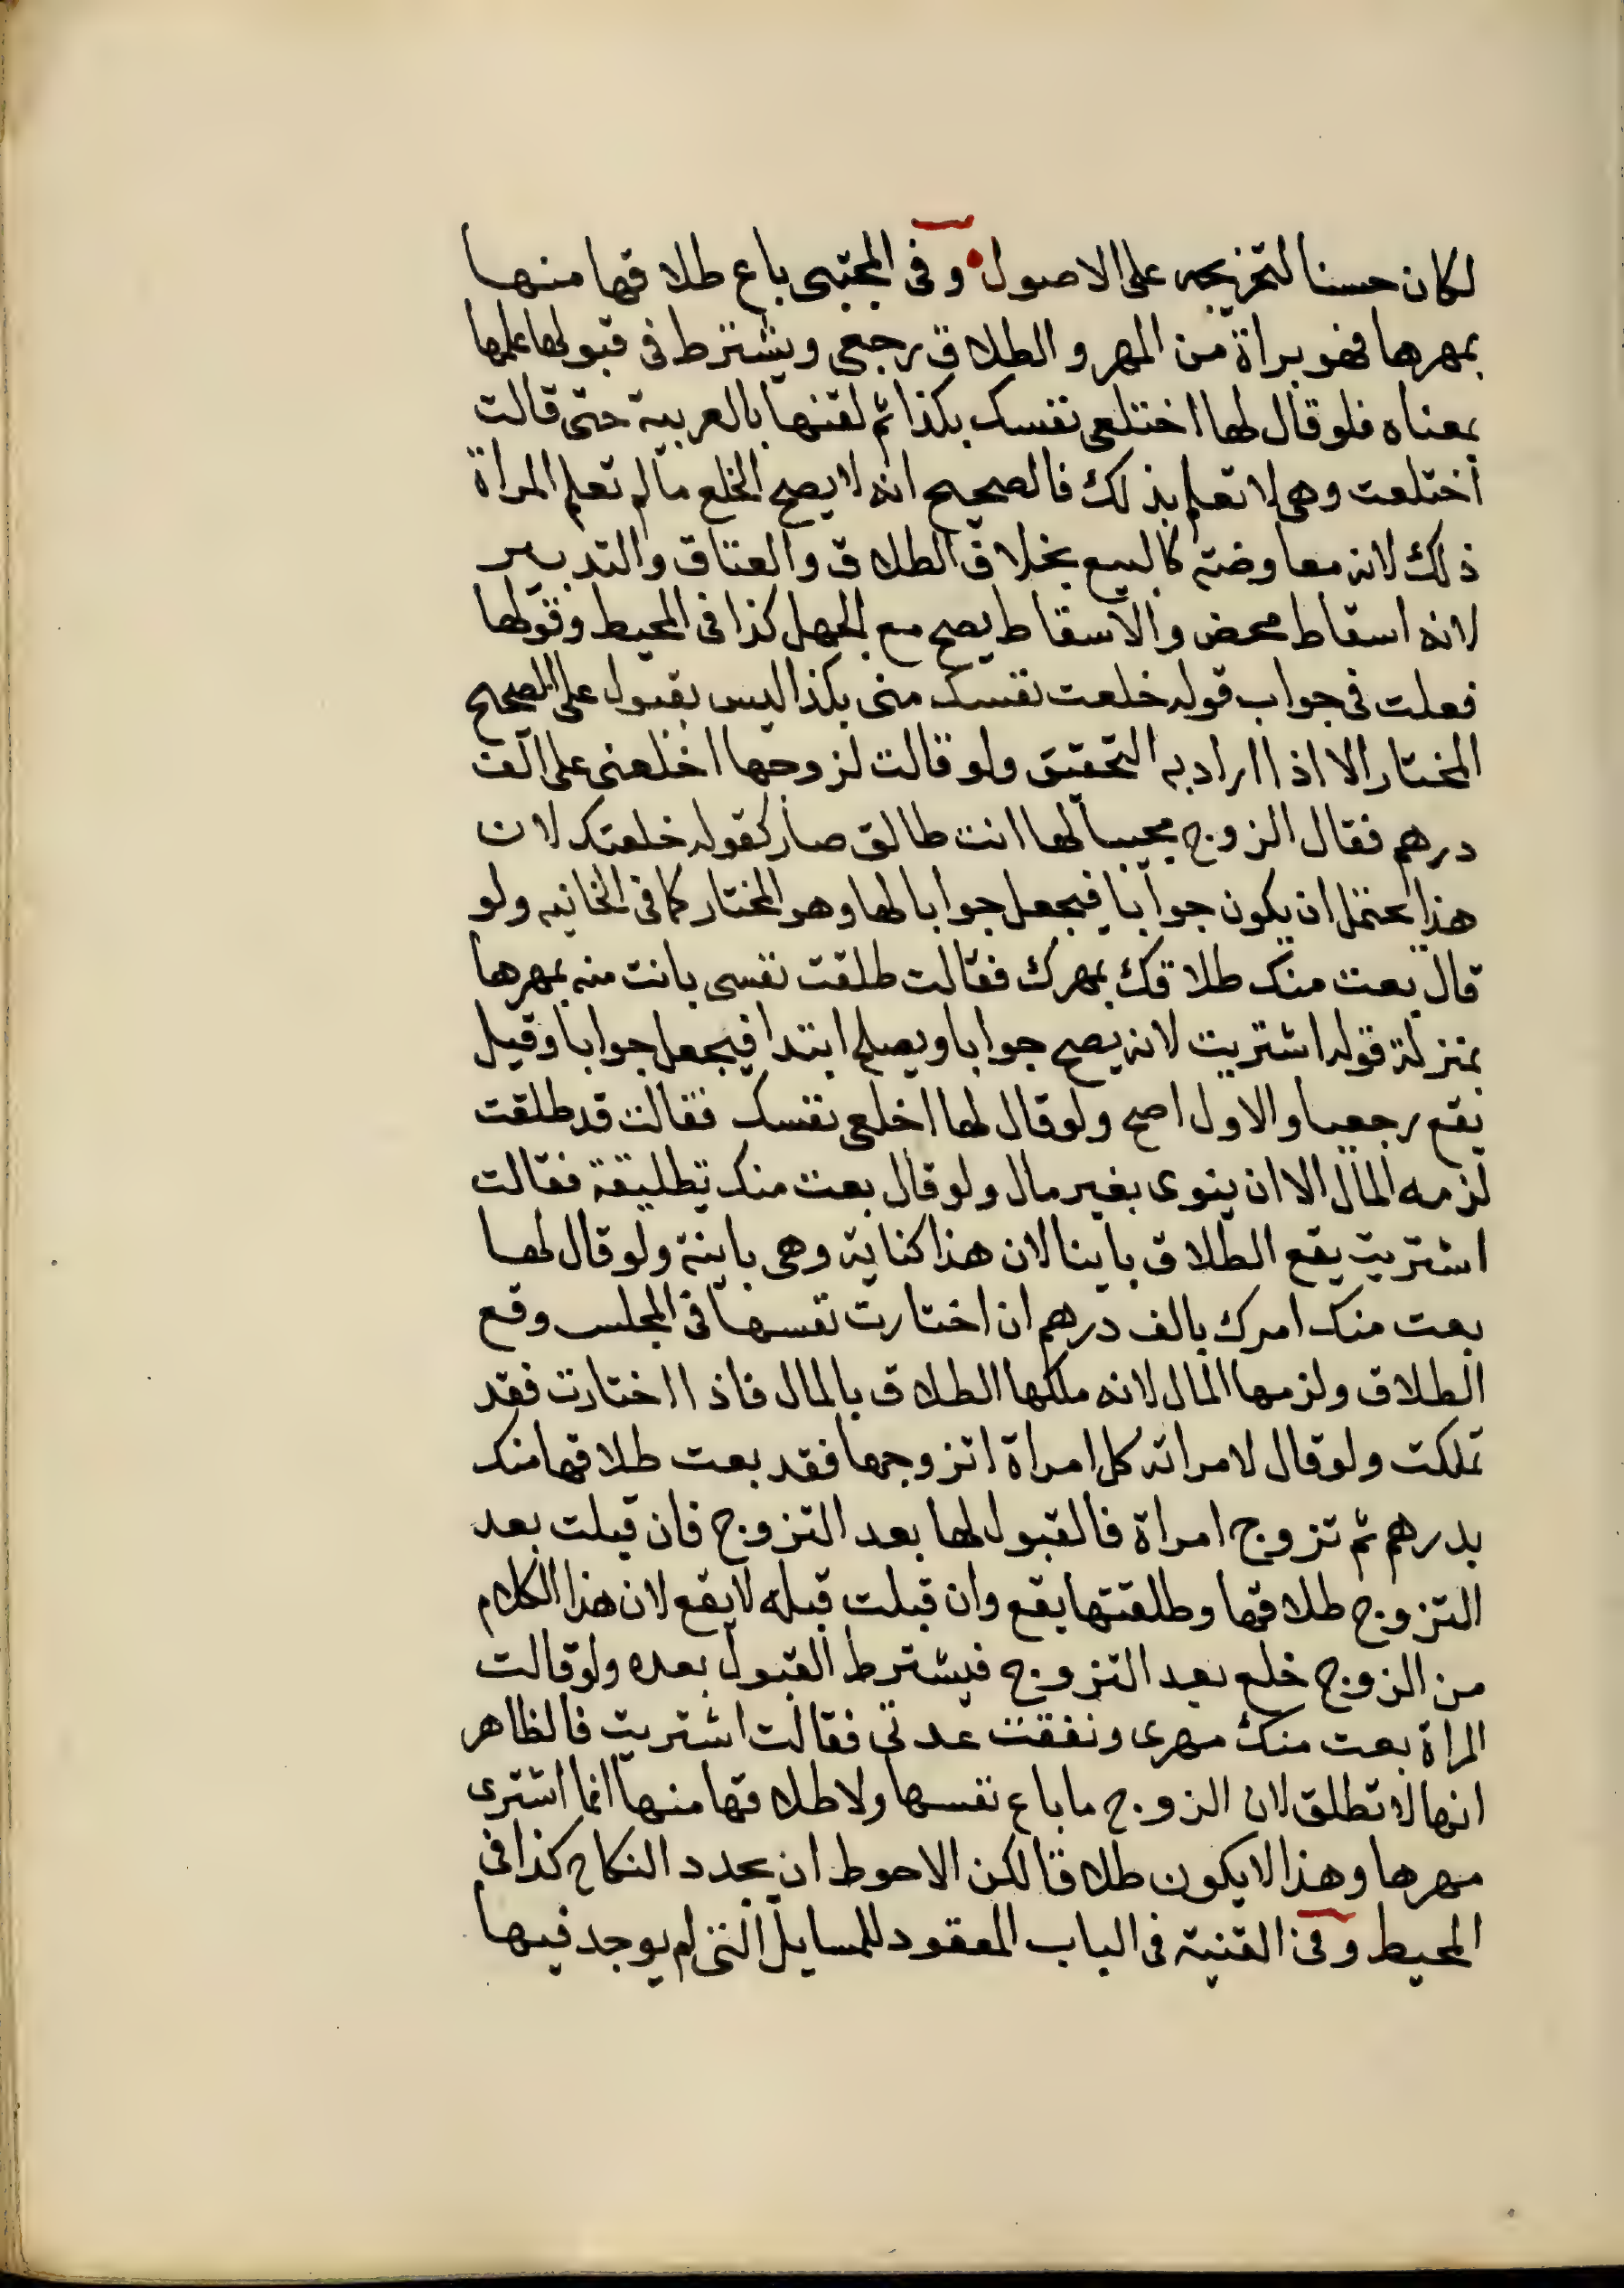 لكان حسنا لتخريجه على الاصول وفى المجتبى باع طلاقها منها
بمهرها فهو براة من المهر والطلاق رجعى ويشترط فى قبولها علمها
بمعناه فلو قال لها اختلعى نفسك بكذا ثم لقنها بالعربية حتى قالت
اختلعت وهى لا تعلم بذلك فالصحيح انه لا يصح الخلع مالم تعلم المراة
ذلك لانه معاوضة كالبيع بخلاف الطلاق والعتاق والتدبير
لانه اسقاط محض والاسقاط يصح مع الجهل كذا فى المحيط وقولها
فعلت فى جواب قوله خلعت نفسك منى بكذا ليس بقبول على الصحيح
المختار الا اذا اراد به التحقيق ولو قالت لزوجها اخلعنى على الف
درهم فقال الزوج مجيبا لها انت طالق صار كقوله خلعتك لان
هذا يحتمل ان يكون جوابا فيجعل جوابا لها وهو المختار كما فى الخانيه ولو
قال بعت منك طلاقك بمهرك فقالت طلقت نفسى بانت منه بمهرها
بمنزلة قوله اشتريت لانه يصح جوابا ويصلح ابتدا فيجعل جوابا وقيل
يقع رجعيا والاول اصح ولو قال لها اخلعى نفسك فقالت قد طلقت
لزمه المال الا ان ينوى بغير مال ولو قال بعت منك تطليقة فقالت
اشتريت يقع الطلاق باينا لان هذا كناية وهى باينة ولو قال لها
بعت منك امرك بالف درهم ان اختارت نفسها فى المجلس وقع
الطلاق ولزمها المال لانه ملكها الطلاق بالمال فاذا اختارت فقد
تملكت ولو قال لامراته كل امراة اتزوجها فقد بعت طلاقها منك
بدرهم ثم تزوج امراة فالقبول لها بعد التزوج فان قبلت بعد
التزوج طلاقها وطلقتها يقع وان قبلت قبله لا يقع لان هذا الكلام
من الزوج خلع بعد التزوج فيشترط القبول بعده ولو قالت
المراة بعت منك مهرى ونفقت عدتى فقالت اشتريت فالظاهر
انها لا تطلق لان الزوج ما باع نفسها ولا طلاقها منها انما اشترى
مهرها وهذا لا يكون طلاقا لكن الاحوط ان يجدد النكاح كذا فى
المحيط وفى القنية فى الباب المعقود للمسايل التى لم يوجد فيها